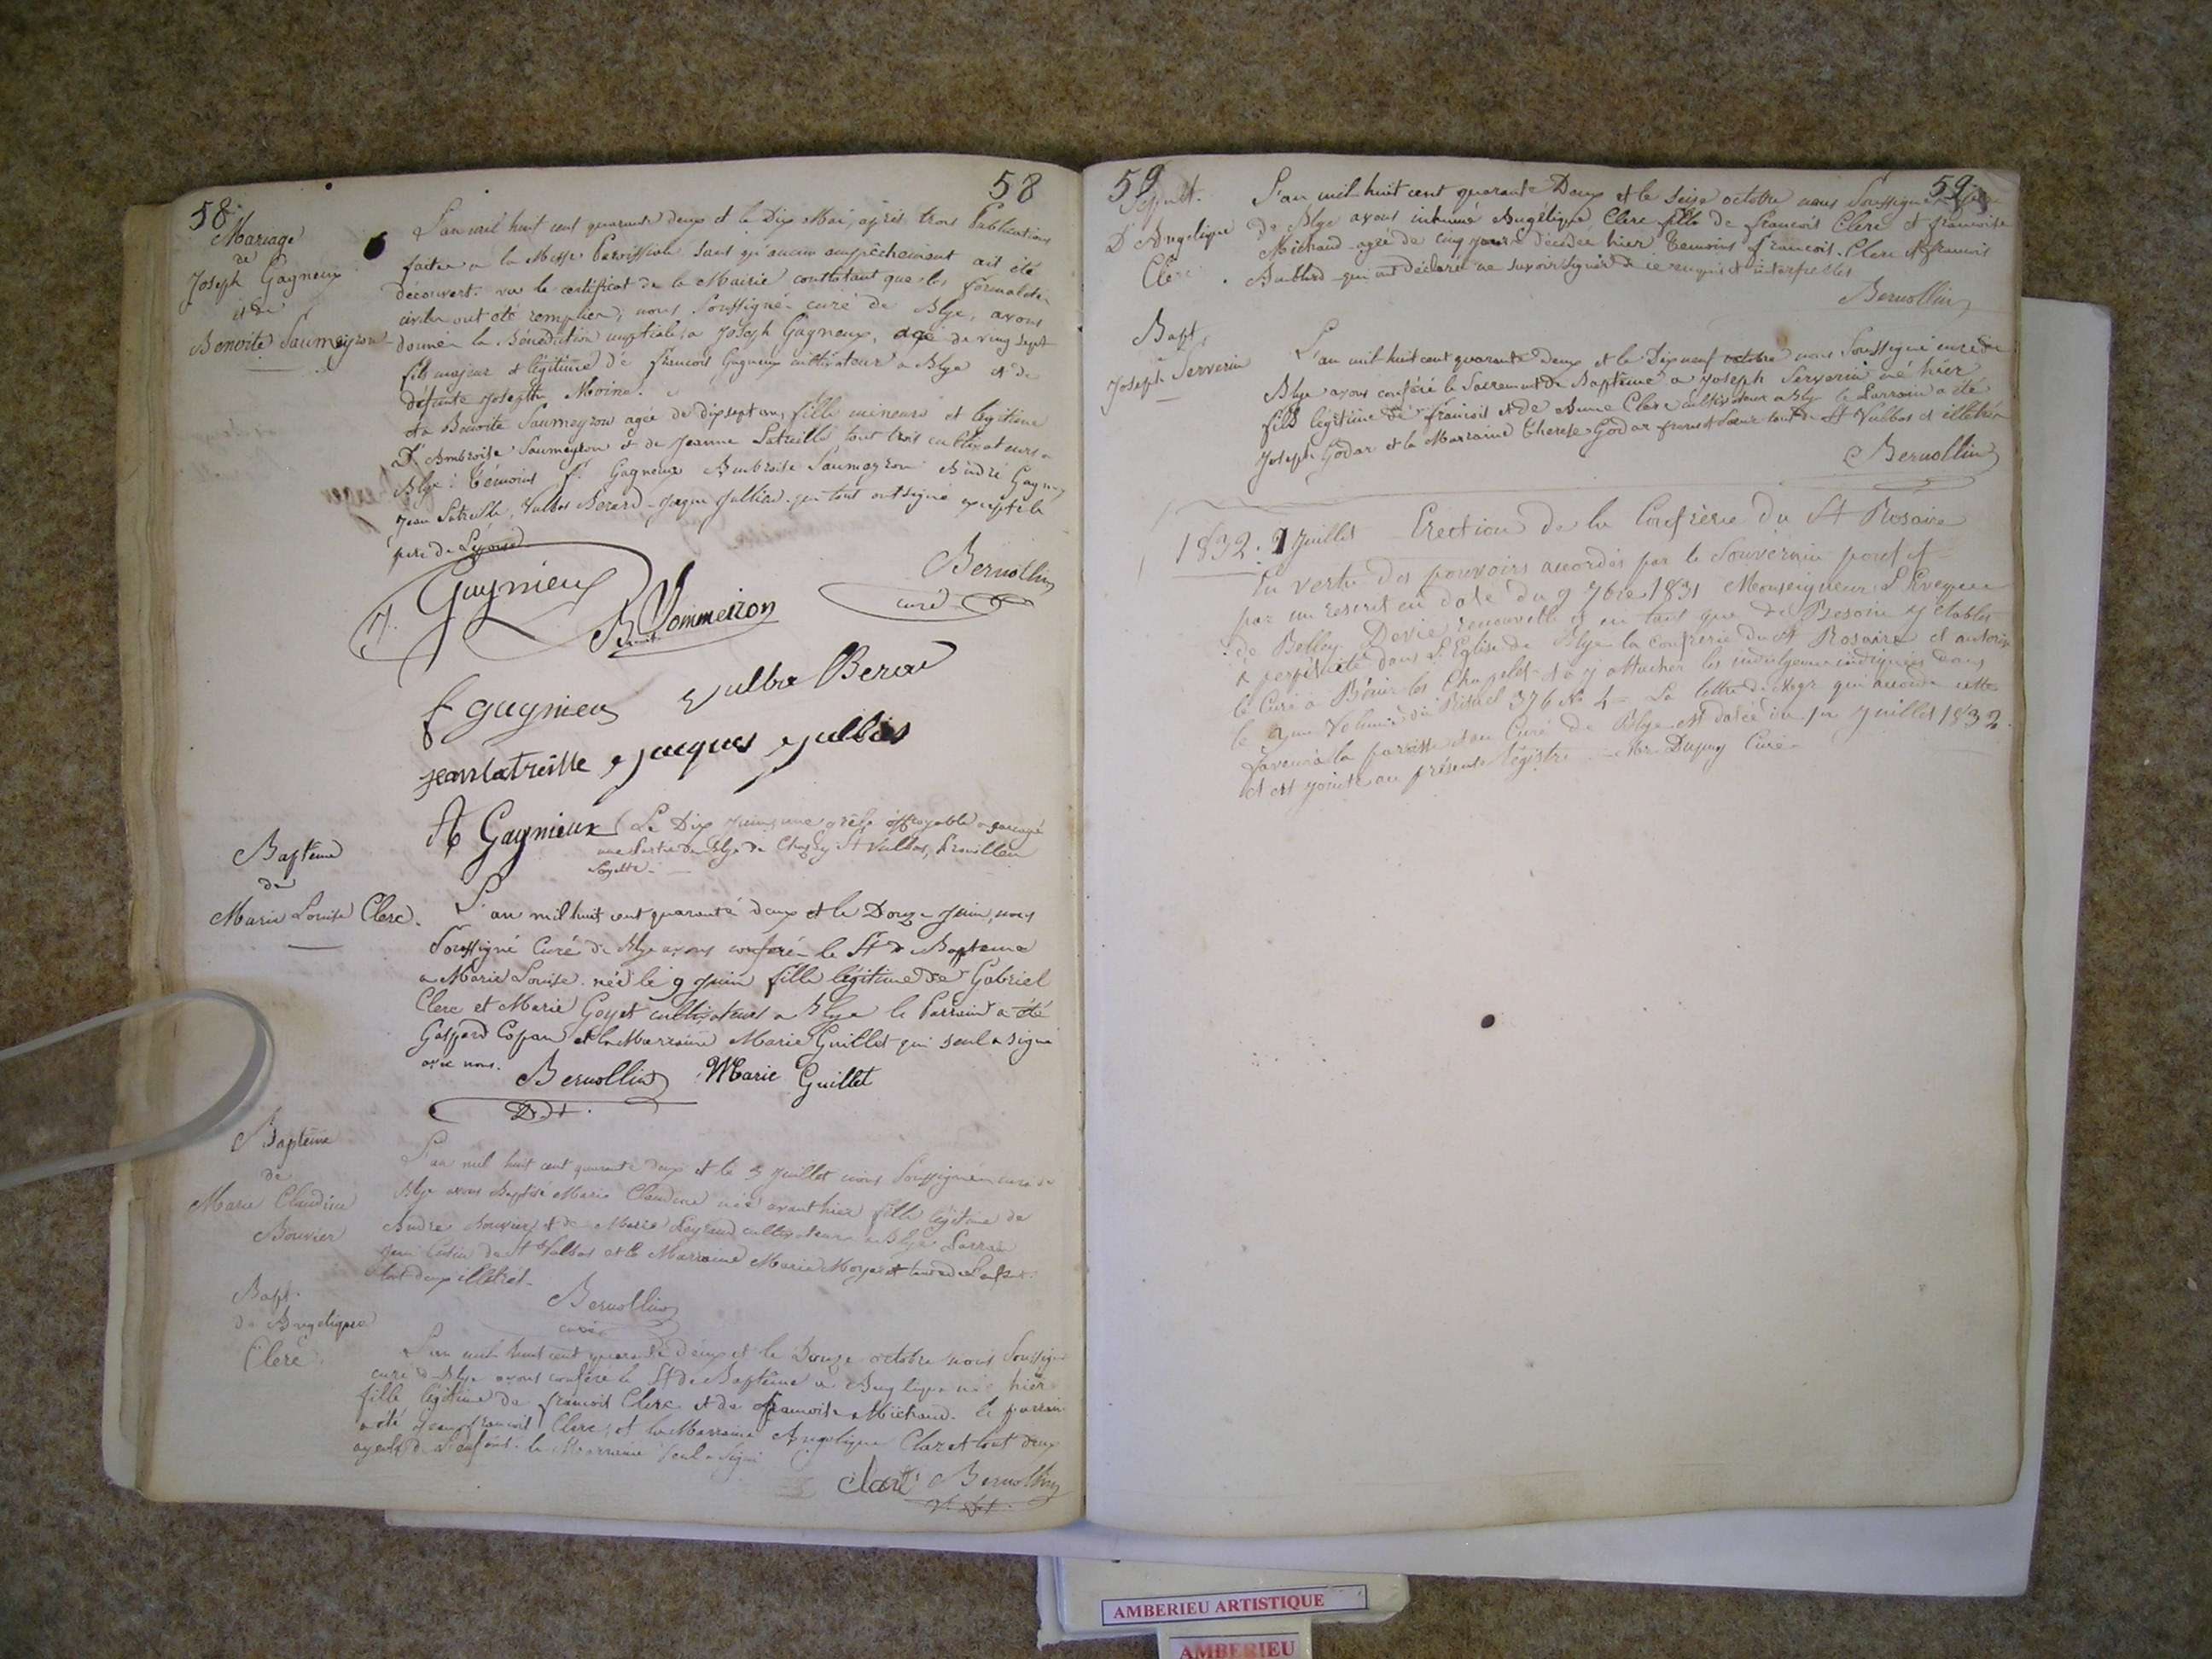 58
58
Mariage
de
Joseph Gagneux
et de
Benoite Saumeyron
L'an mil huit cent quarante deux et le Dix Mai, après trois Publications
faites a la Messe Paroissiale sans qu'aucun empêchement ait été
découvert. vu le certificat de la Mairie constatant que les formalités
civiles ont été remplies, nous Soussigné curé de Blye, avons
donner la Bénédiction nuptiale, a Joseph Gagneux, agé de ving sept
fils majeur et légitime de francois Gagneux cultivateur a Blye et de
défunte Josephte Moine.
et a Benoite Saumeyron agée de dixsept ans, fille mineure et légitime
D'Ambroise Saumeyron et de Jeanne Latreille tout trois cultivateurs a
Blye. Témoins f. Gagneux Ambroise Saumeyron André Gagneux
Jean Latreille, Vulbas Berard Jaque Jullien qui tout ont signé excepté le
père de
J. Gagnieux
Bernollin
curé
B Sommeiron
f gagnieux
vulba Berar
jean latreille
jacques jullies
A Gagnieux
Le Dix Juin, une grêle effroyable a ravagé
une Partie de Blye de Chazey St Vulbas,
Loyette
Baptême
de
Marie Louise Clerc.
L'an mil huit cent quarante deux et le Douze Juin, nous
Soussigné Curé de Blye avons conferé le St de Bapteme
a Marie Louise née le 9 Juin fille légitime de Gabriel
Clerc et Marie Goyet cultivateurs a Blye le Parrain a été
Gaspard Copan et la Marraine Marie Guillet qui seul a signé
avec nous.
Bernollin
Marie Guillet
Baptême
de
Marie Claudine
Bouvier
L'an mil huit cent quarante deux et le 3 Juillet nous Soussigné curé de
Blye avons Baptisé Marie Claudine née avant hier fille légitime de
André Bouvier et de Marie cultivateurs a Blye Parrain
de St Vulbas et la Marraine Marie
tout deux illétrés
Bernollin
curé
Bapt.
de Angelique
Clerc
L'an mil huit cent quarante deux et le Douze octobre nous Soussigné
curé de Blye avons conféré le St de Baptême a Angelique née hier
fille légitime de francois Clerc et de francoise Michaud. le parrain
a été Jean francois Clerc, et la Marraine Angelique Claret tout deux
ayeuls de l'enfant. la Marraine seul a signé
claret
Bernollin
59
59
Sépult.
D'Angelique
Clerc
L'an mil huit cent quarante Deux et le seize octobre nous Soussigné
de Blye avons inhumé Angélique Clerc fille de francois Clerc et francoise
Michaud agée de cinq jours décédée hier Témoins francois Clerc et francois
qui ont déclaré ne savoir signer de ce enquis et interpellés
Bernollin
Bapt.
Joseph Serverin
L'an mil huit cent quarante deux et le Dix neuf octobre nous Soussigné curé de
Blye avons conféré le Sacrement de Baptême a Joseph Serverin né hier
fils légitime de francois et de Anne Clerc cultivateur a Blye le Parrain a été
Joseph Godar et la Marraine Therese Godar frere et Soeur tout de St Vulbas et illétrés
Bernollin
1832. 1 Juillet Erection de la Confrèrie du St Rosaire
En vertu des pouvoirs accordés par le Souverain pontif
par un rescrit en date du 9 7bre 1831 Monseigneur L'Eveque
de Belley Devie, renouvelle et en tant que de Besoin y établit
a perpétuité dans L'Eglise de Blye la confrerie du St Rosaire et autorise
le Curé a Bénir les Chapelets et a y attacher les indulgences indiquées dans
le 2me Volume du Rituel 376 No 4 - La lettre de Mgr qui accorde cette
faveur a la paroisse et au Curé de Blye est datée du 1er Juillet 1832.
et est jointe au présent Régistre - Mr Dupuy Curé
AMBERIEU ARTISTIQUE
AMBERIEU